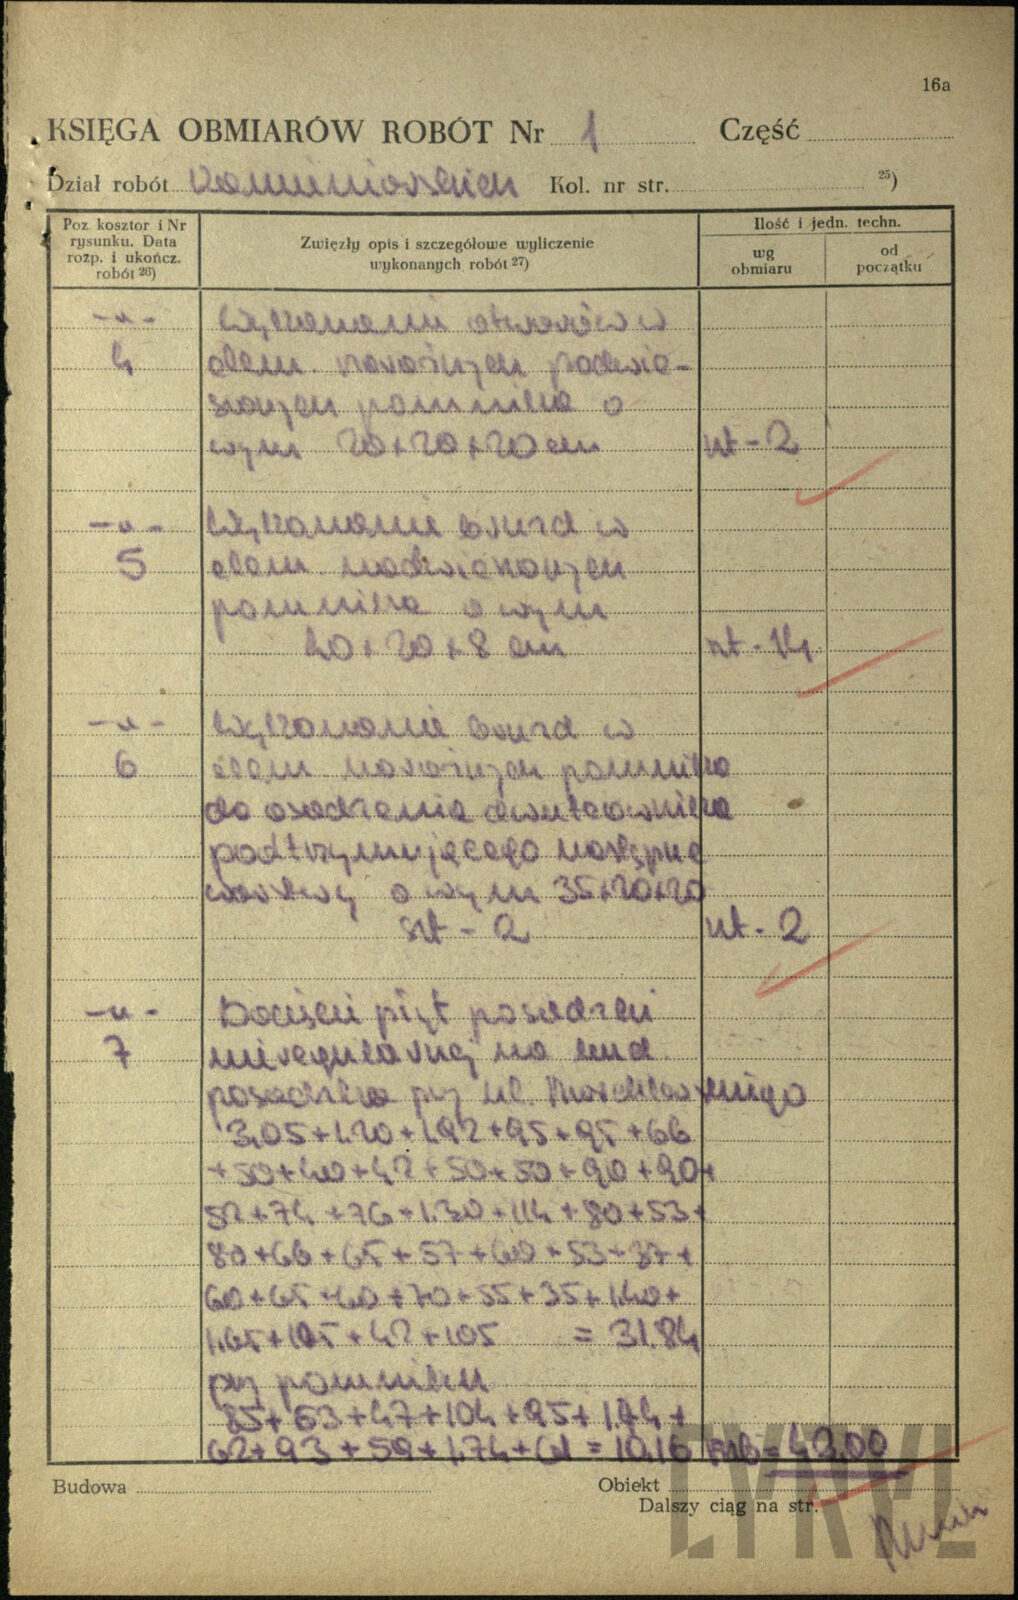 16a
KSIĘGA OBMIARÓW ROBÓT Nr 1 Część
Dział robót Kamieniarskich Kol. nr str. 25)
Poz kosztor i Nr rysunku. Data rozp. i ukończ. robót 26)
Zwięzły opis i szczegółowe wyliczenie wykonanych robót 27)
Ilość i jedn. techn.
wg obmiaru
od początku
-"- Wykonanie otworów w
4 elem. narożnych podwie-
szonych pomnika o
wym 20+20+20 cm szt - 2
-"- Wykonanie bruzd w
5 elem.
pomnika o wym
40+20+8 cm szt - 14
-"- Wykonanie bruzd w
6 elem narożnych pomnika
do osadzenia dwuteownika
podtrzymującego następne
warstwy o wym 35+20+20
szt - 2 szt - 2
-"- Docięcie płyt posadzki
7 nieregularnej na bud.
przy ul.
3,05+1.20+1.92+95+95+66
+50+40+42+50+50+90+90+
52+74+76+1.30+114+80+53+
80+66+65+57+60+53+37+
60+65+60+70+55+35+1.40+
1.65+105+42+105 = 31.84
przy pomniku
85+63+47+104+95+1.94+
62+93+59+1.74+61 = 10.16 mb = 42,00
Budowa
Obiekt
Dalszy ciąg na str.